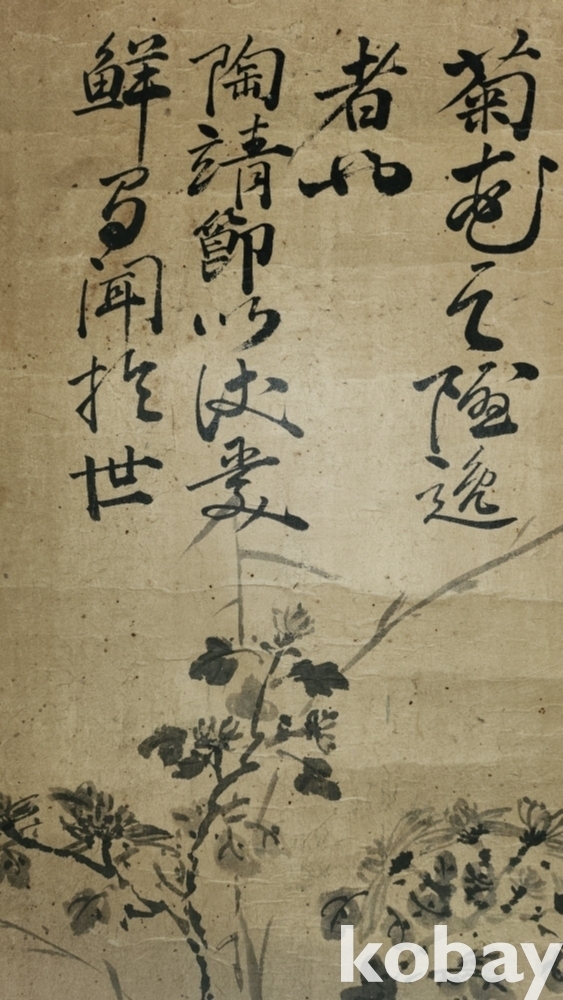 菊花之隱逸
者也
陶靖節以後愛
鮮有聞於世
kobay